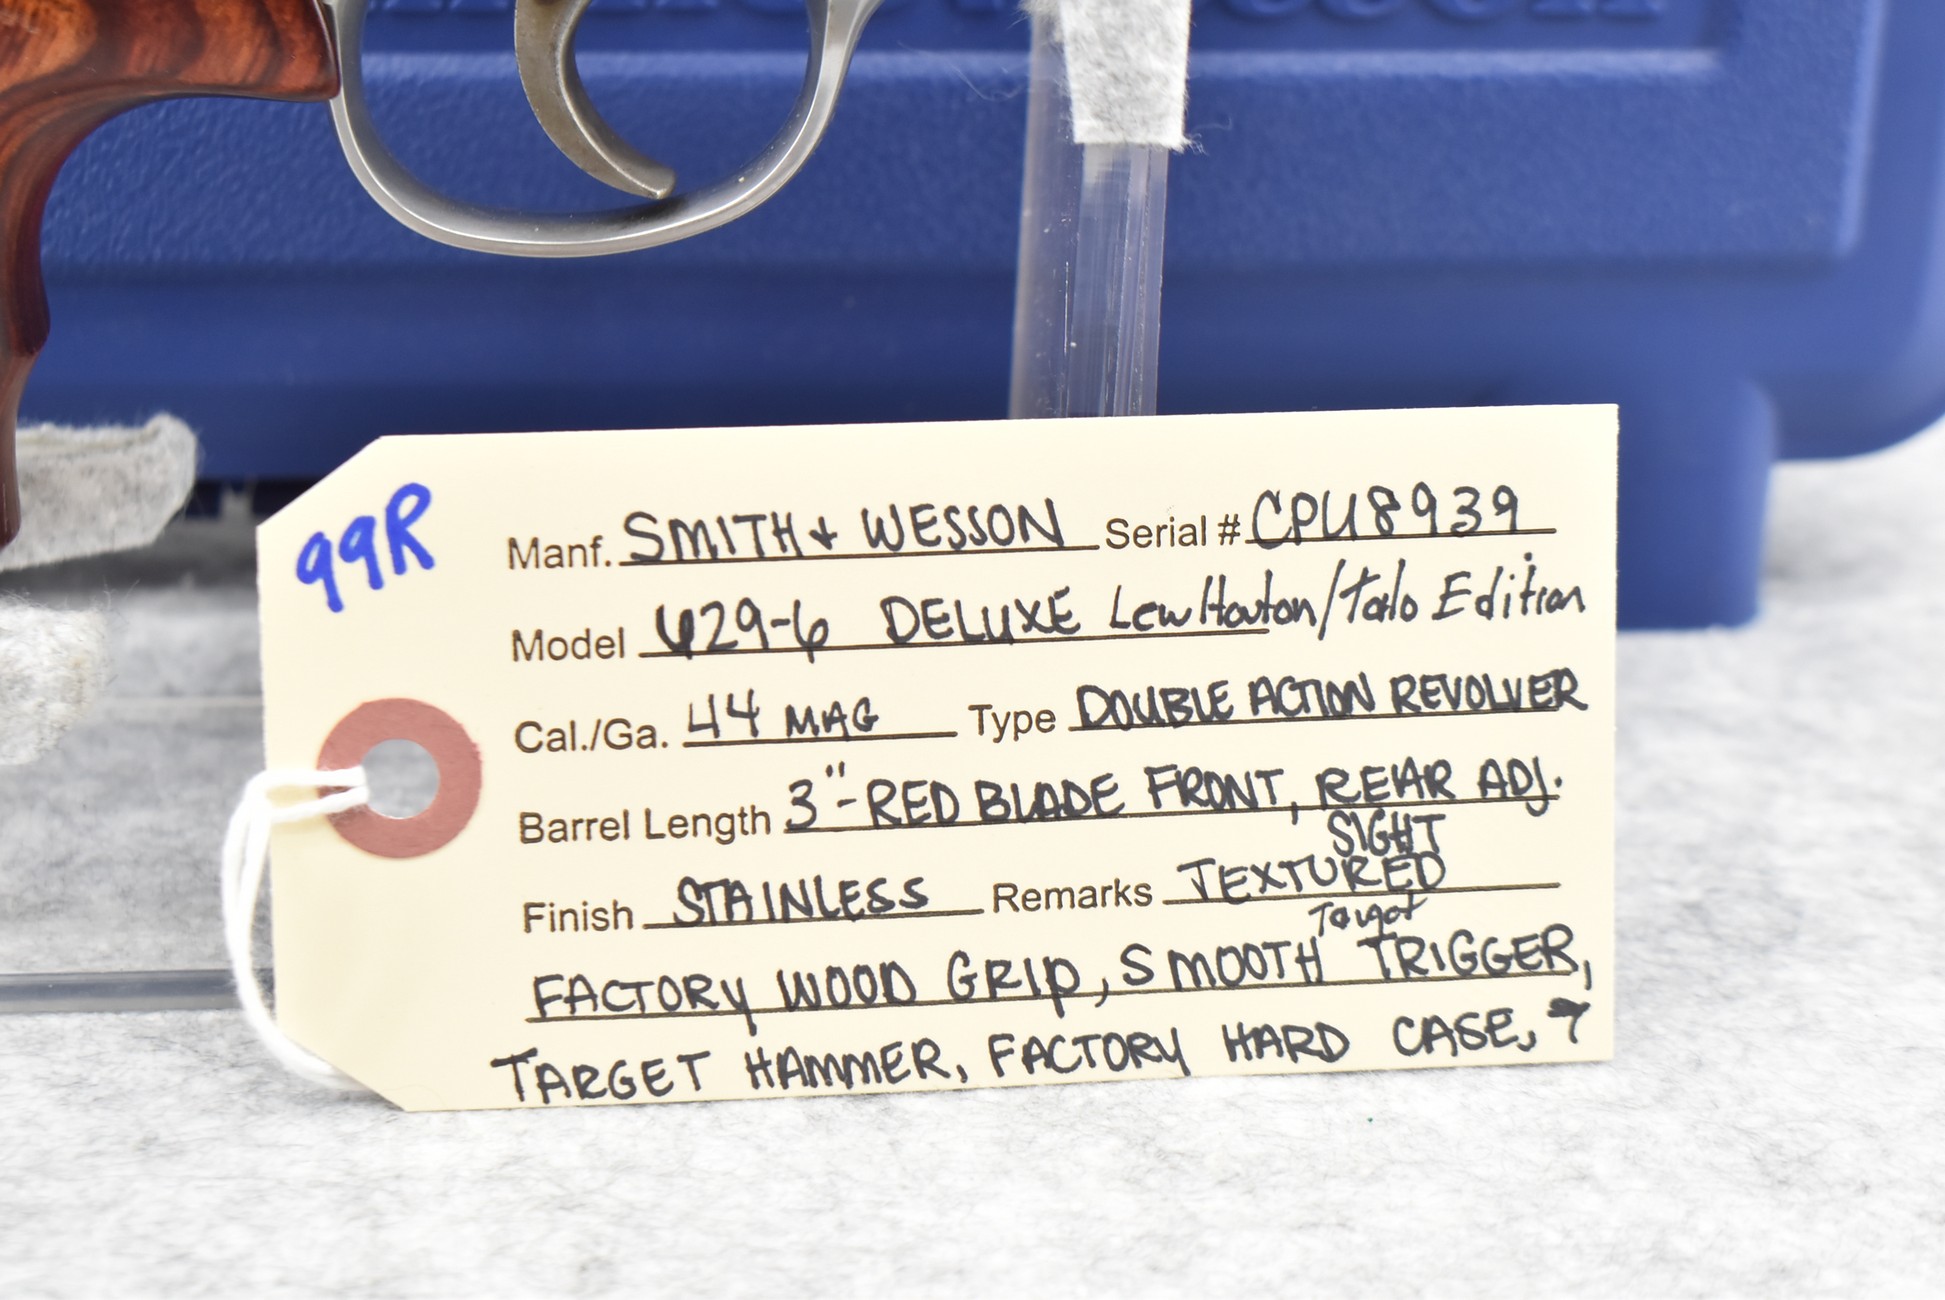 99R
Manf. SMITH + WESSON Serial # CPU8939
Model 629-6 DELUXE Lew Horton/Talo Edition
Cal./Ga. 44 MAG Type DOUBLE ACTION REVOLVER
Barrel Length 3"-RED BLADE FRONT, REAR ADJ.
SIGHT
Finish STAINLESS Remarks TEXTURED
Target
FACTORY WOOD GRIP, SMOOTH TRIGGER,
TARGET HAMMER, FACTORY HARD CASE,